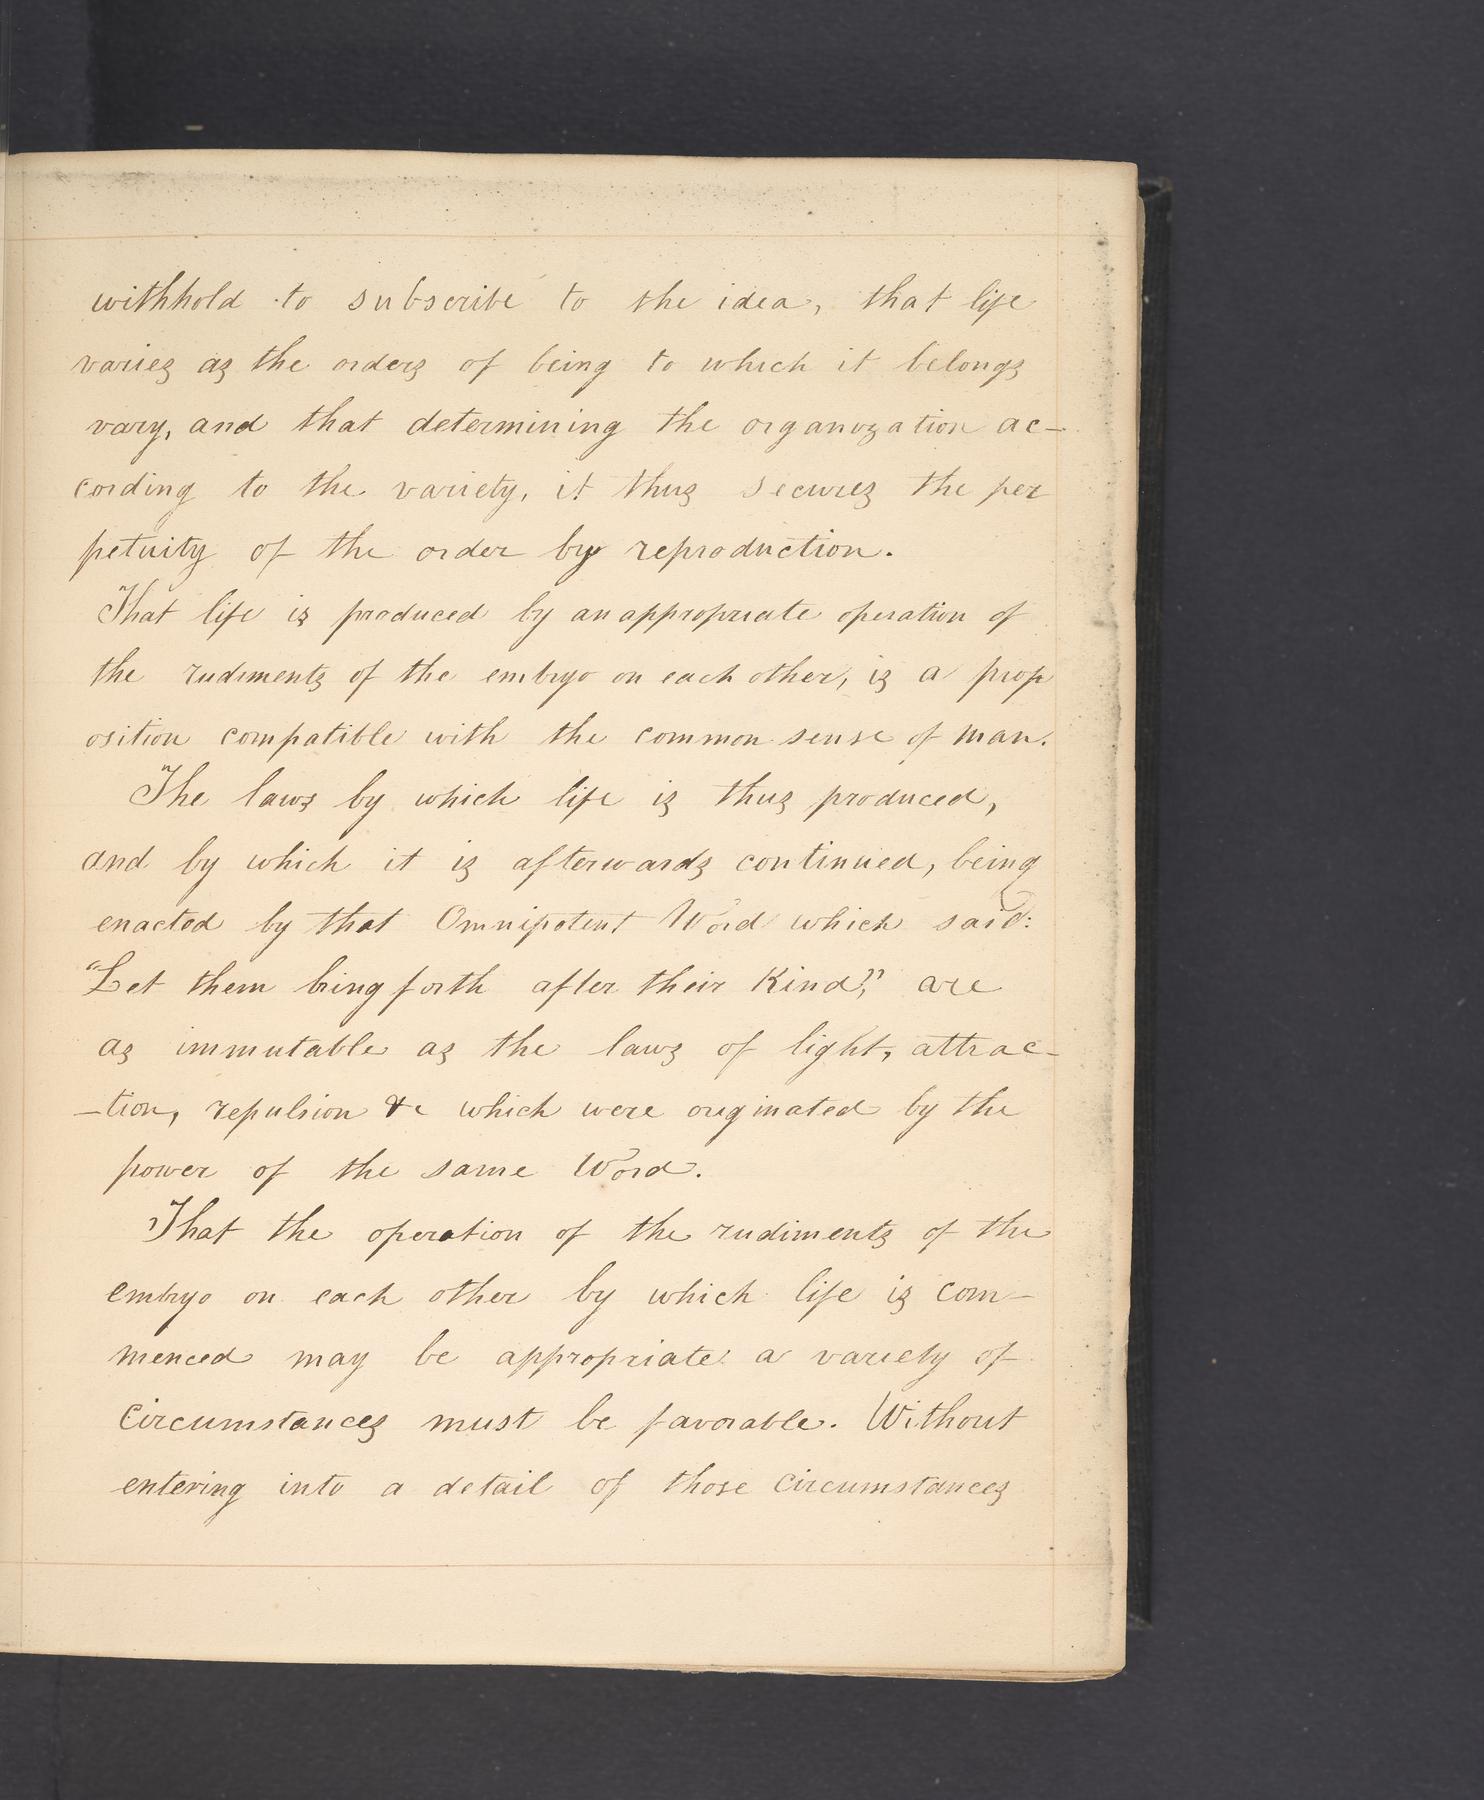 withhold to subscribe to the idea, that life
varies as the orders of being to which it belongs
vary, and that determining the organization ac-
cording to the variety, it thus secures the per
petuity of the order by reproduction.
That life is produced by an appropriate operation of
the rudiments of the embryo on each other, is a prop
osition compatible with the common sense of man.
The laws by which life is thus produced,
and by which it is afterwards continued, being
enacted by that Omnipotent Word which said:
"Let them bring forth after their Kind," are
as immutable as the laws of light, attrac-
-tion, repulsion &c which were originated by the
power of the same Word.
That the operation of the rudiments of the
embryo on each other by which life is com-
menced may be appropriate a variety of
circumstances must be favorable. Without
entering into a detail of those circumstances